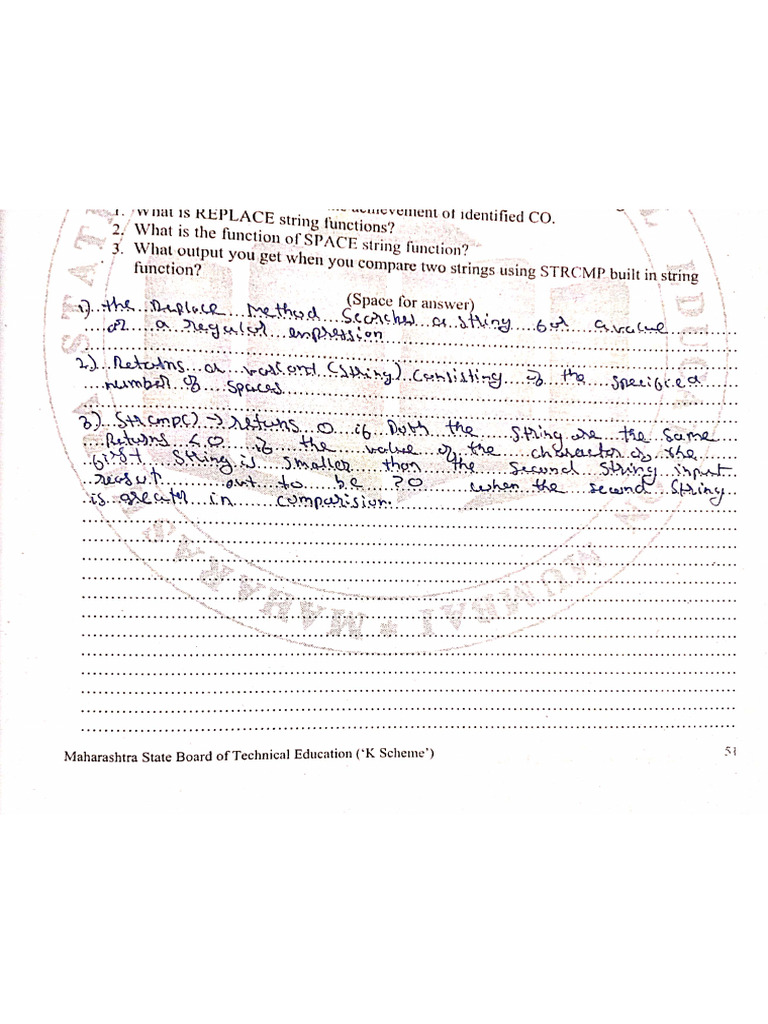 achievement of identified CO.
1. What is REPLACE string functions?
2. What is the function of SPACE string function?
3. What output you get when you compare two strings using STRCMP built in string
function?
(Space for answer)
1) the Replace Method Searches a string for a value
or a regular expression
2) Returns a (string) Consisting of the specified
number of spaces
3) Strcmp() → returns 0 if both the string are the same
Returns <0 if the value of the character of the
first string is smaller than the second string input
out to be >0 when the second string
is greater in comparision.
STATE
EDUCA
MUMBAI * MAHARA
Maharashtra State Board of Technical Education (‘K Scheme’)
51